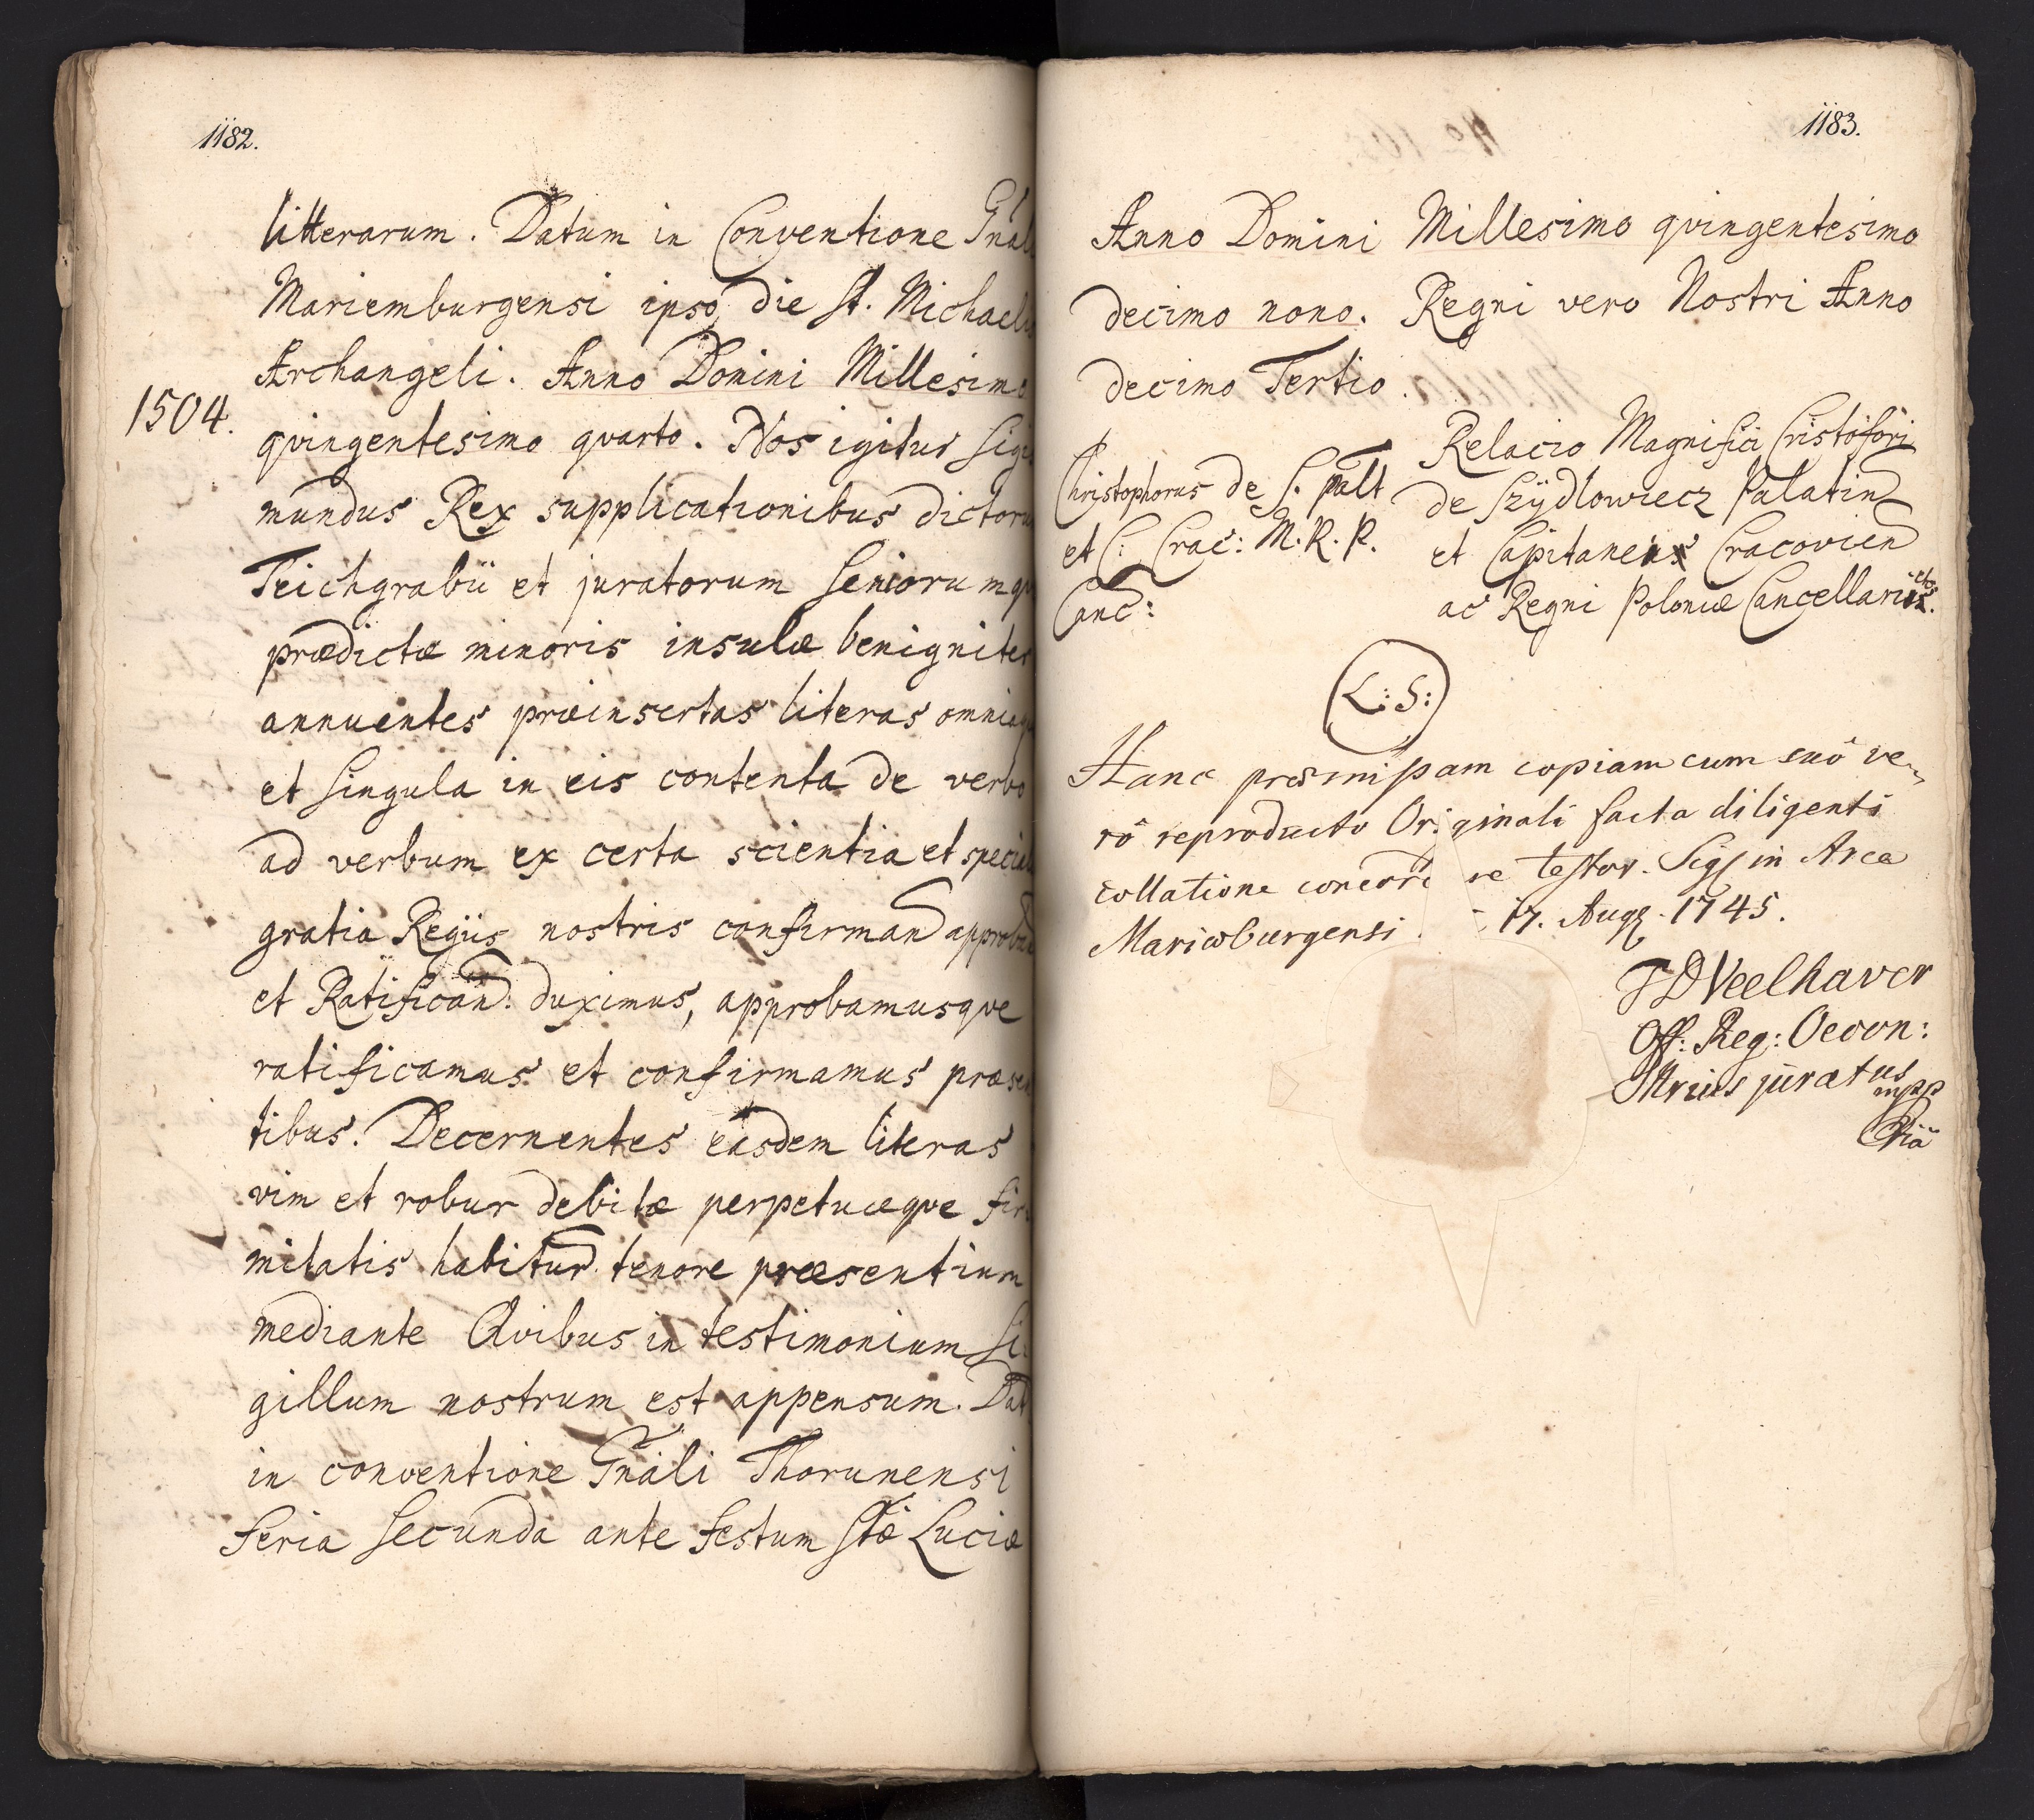 1182.
litterarum. Datum in Conventione Gnal
Mariemburgensi ipso die St. Michaelis
Archangeli. Anno Domini Millesimo
1504.
qvingentesimo qvarto. Nos igitur Sigis
mundus Rex supplicationibus dictorum
Teichgrabii et juratorum Seniorumqve
prædictæ minoris insulæ benigniter
annuentes præinsertas literas omniaqve
et Singula in eis contenta de verbo
ad verbum ex certa scientia et speciali
gratia Regiis nostris confirmand approband
et Ratifican̄d: duximus, approbamusqve
ratificamus et confirmamus præsen
tibus. Decernentes easdem literas
vim et robur debitæ perpetuæqve fir
mitatis habitur tenore præsentium
mediante Qvibus in testimonium Si
gillum nostrum est appensum. Dat
in conventione Gnāli Thorunensi
Feria Secunda ante Festum Stæ Luciæ
1183.
Anno Domini Millesimo qvingentesimo
decimo nono. Regni vero Nostri Anno
decimo Tertio.
Christophorus de S. Palt
et C: Crac: M. R. P.
Canc:
Relacio Magnifici Cristofori
de Szÿdlowiecz Palatin
et Capitanens Cracovien
ac Regni Poloniæ Cancellarii etc.
L: S:
Hanc præmissam copiam cum suô ve,,
rô reproducto Originali facta diligenti
collatione concord re testor. Sigs in Arce
Marieburgensi 17. Augs. 1745.
JDVeelhaver
Off: Reg: Oecon:
Nrius juratus
mpp